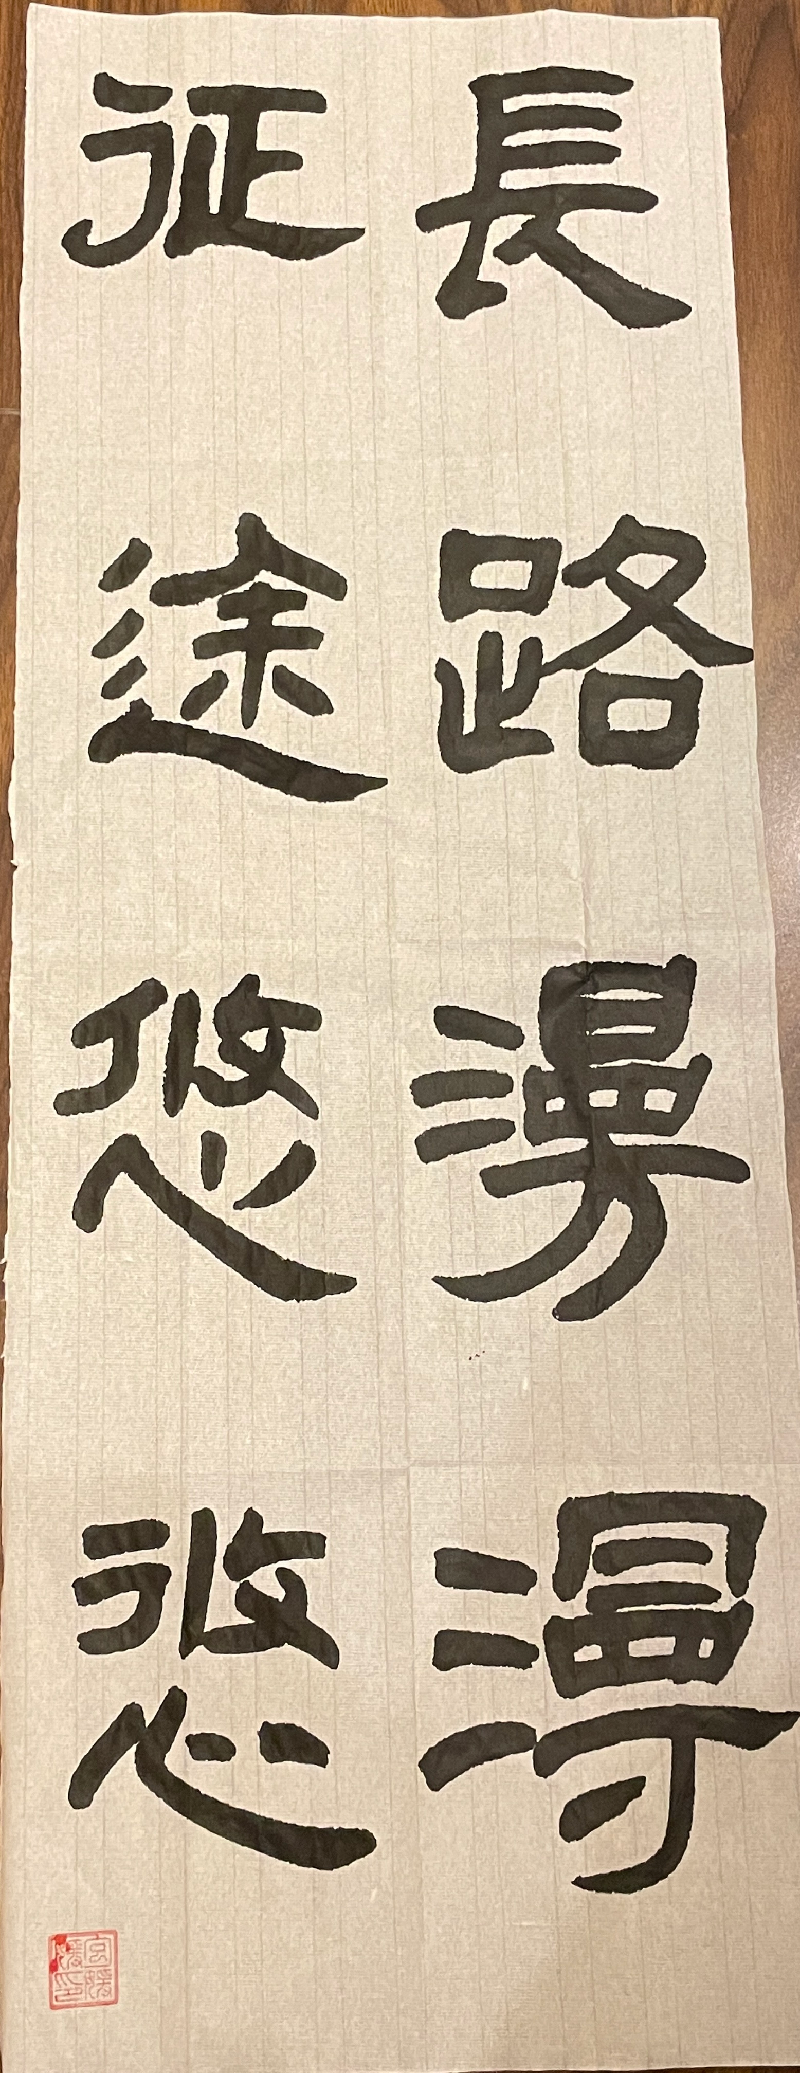 長路漫漫
征途悠悠